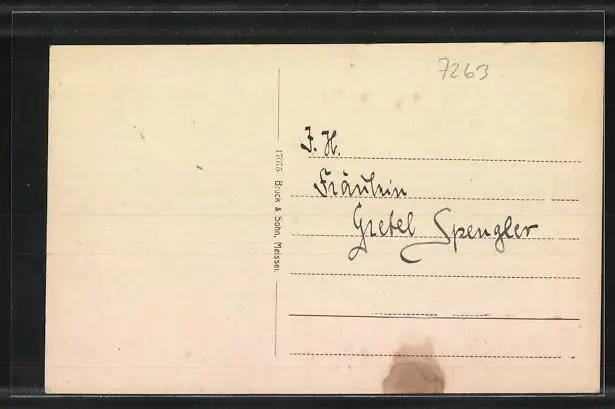 7263
I. H.
Fräulein
Gretel Spengler
17075 Brück & Sohn, Meissen